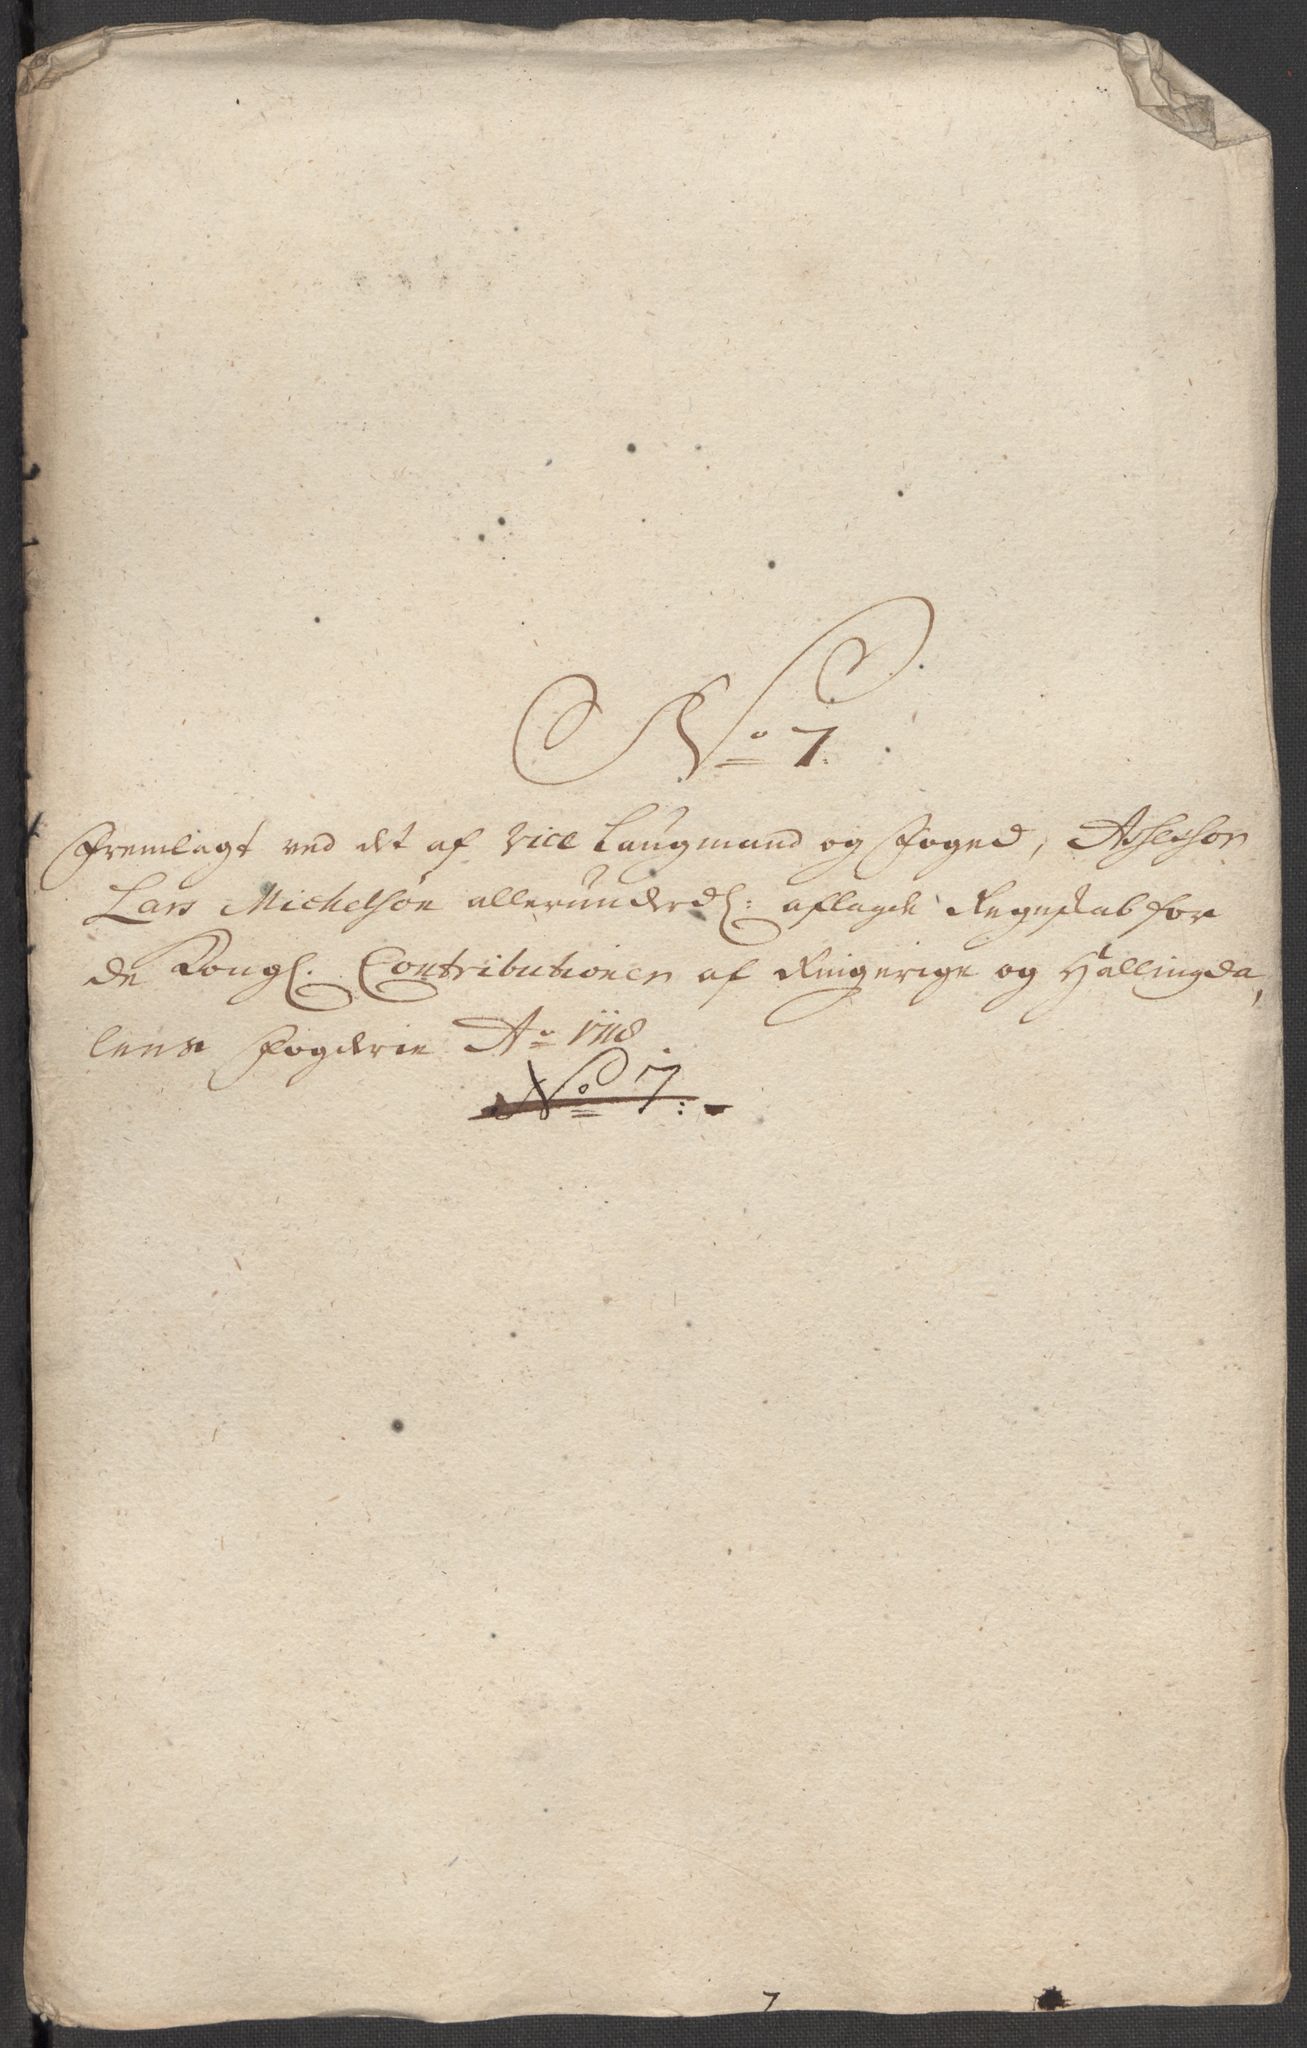 No 7.
Fremlagt ved det af Vice Laugmand og Foged, Assessor
Lars Michelsøn allerunderd: aflagde Regnskab for
de Kongl. Contributioner af Ringerige og Hallingda,
lens Fogderie Ao 1718.
No 7:
7